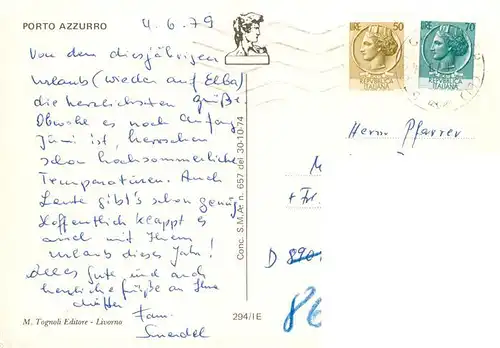 PORTO AZZURRO
4.6.79
Von dem diesjährigen
Urlaub (wieder auf Elba)
die herzlichsten Grüße.
Obwohl es noch Anfang
Juni ist, herrschen
schon hochsommerliche
Temperaturen. Auch
Leute gibt's schon genug.
Hoffentlich klappt es
auch mit Ihrem
Urlaub dieses Jahr!
Alles Gute und auch
herzliche Grüße an Ihre
Fam.
M. Tognoli Editore - Livorno
294/IE
Conc. S.M.Ae. n. 657 del 30-10-74
LIRE 50
REPUBBLICA
ITALIANA
LIRE 70
REPUBBLICA
ITALIANA
Herrn Pfarrer
M
+ Frl.
D 890
86